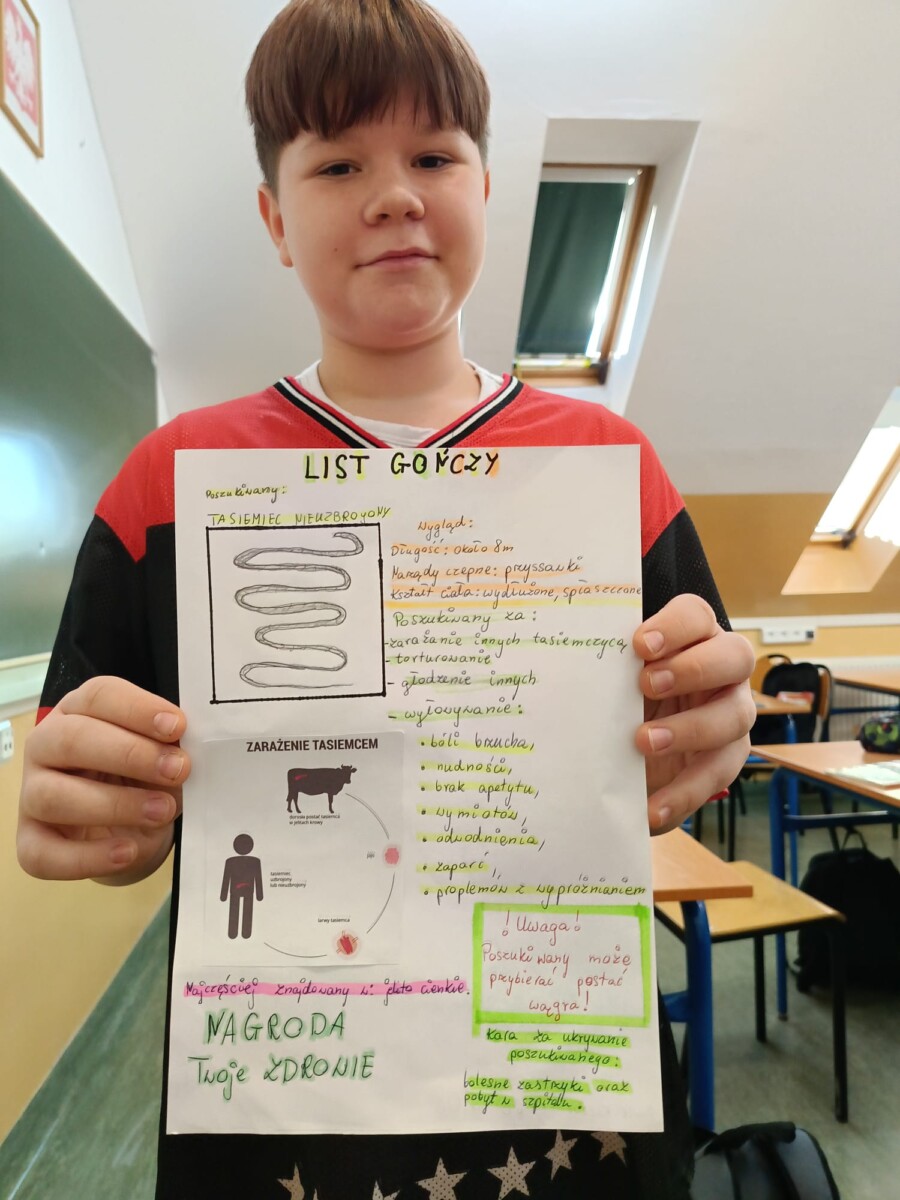 LIST GOŃCZY
Poszukiwany:
TASIEMIEC NIEUZBROJONY
Wygląd:
Długość: około 8m
Narządy czepne: przyssawki
Kształt ciała: wydłużone, spłaszczone
Poszukiwany za:
- zarażanie innych tasiemczycą
- torturowanie
- głodzenie innych
- wywoływanie:
• bóli brzucha,
• nudności,
• brak apetytu,
• wymiotów,
• odwodnienia,
• zaparć,
• proplemów z wypróżnianiem
ZARAŻENIE TASIEMCEM
dorosła postać tasiemca
w jelitach krowy
jaja
tasiemiec
uzbrojony
lub nieuzbrojony
larwy tasiemca
! Uwaga!
Poszukiwany może
przybierać postać
wągra!
Najczęściej znajdowany w: jelito cienkie.
NAGRODA
Twoje ZDROWIE
Kara za ukrywanie
poszukiwanego:
bolesne zastrzyki oraz
pobyt w szpitalu.